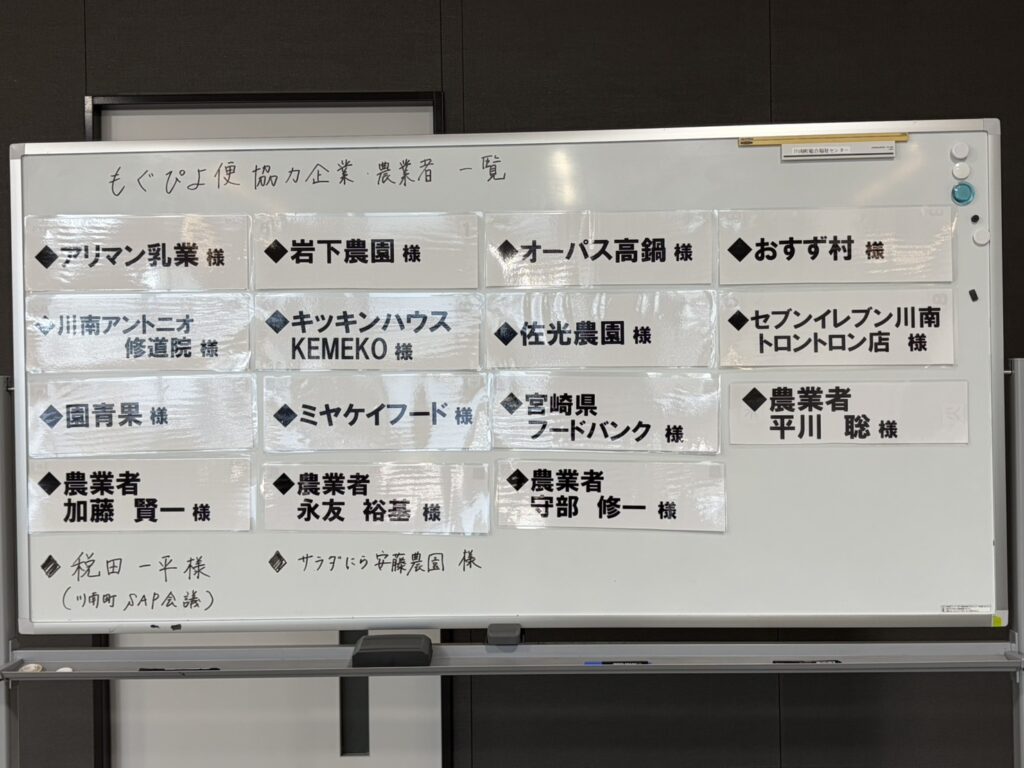 もぐぴよ便 協力企業・農業者 一覧
川南町総合福祉センター
◆アリマン乳業 様
◆岩下農園 様
◆オーパス高鍋 様
◆おすず村 様
◆川南アントニオ
修道院 様
◆キッキンハウス
KEMEKO 様
◆佐光農園 様
◆セブンイレブン川南
トロントロン店 様
◆園青果 様
◆ミヤケイフード 様
◆宮崎県
フードバンク 様
◆農業者
平川 聡 様
◆農業者
加藤 賢一 様
◆農業者
永友 裕基 様
◆農業者
守部 修一 様
◆税田 一平様
(川南町 SAP会議)
◆サラダにら安藤農園 様